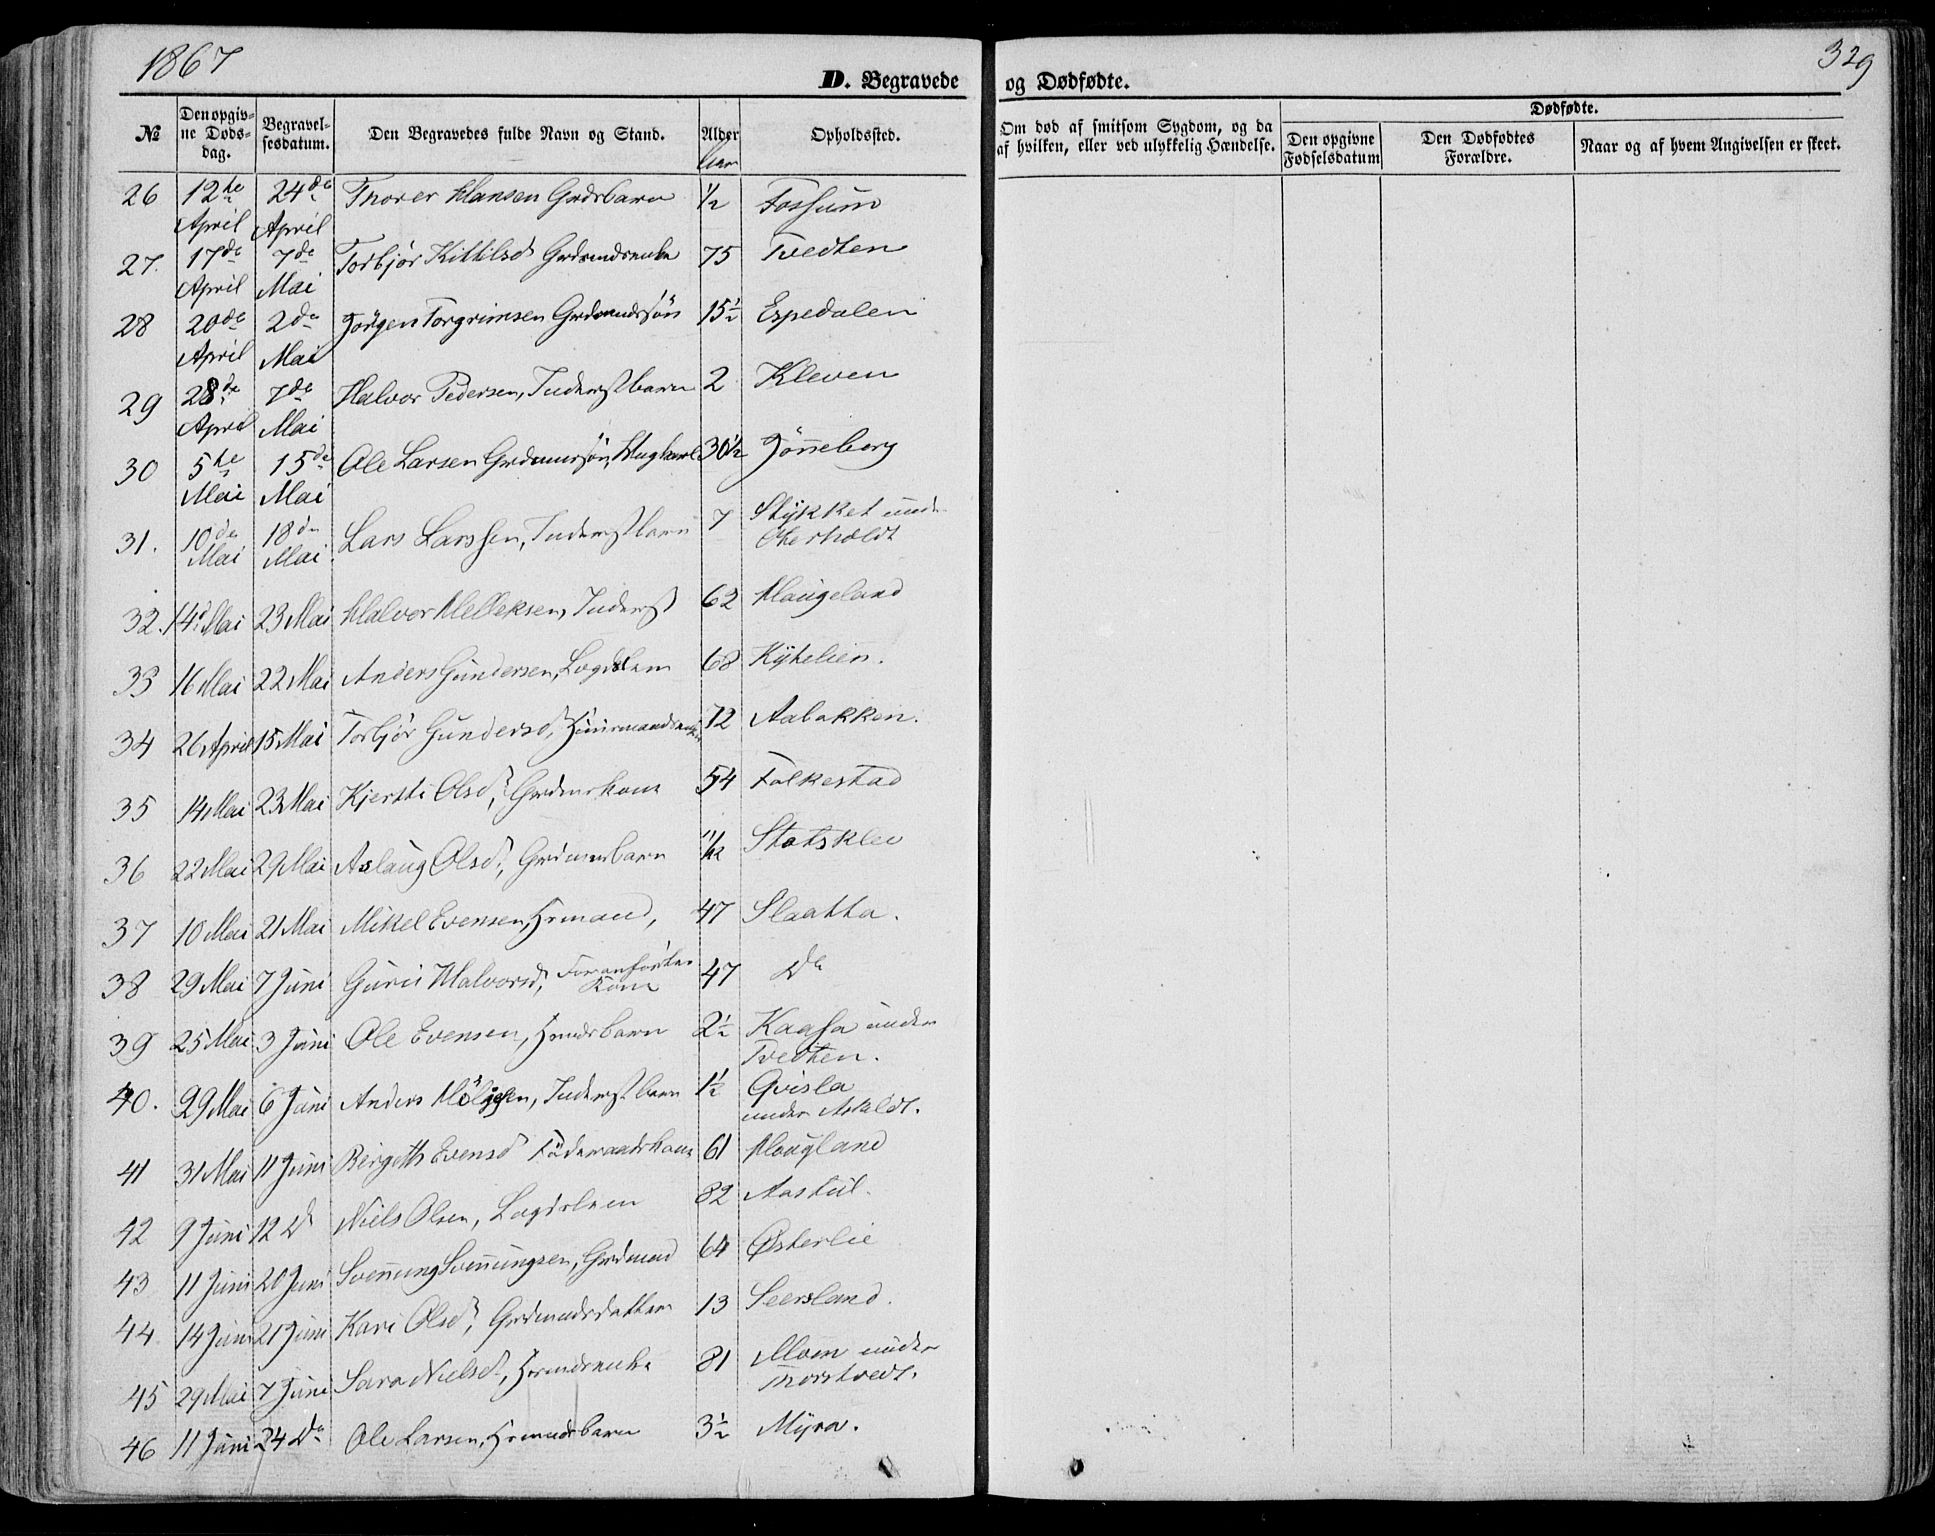 1867
329
D. Begravede og Dødfødte.
№ Den opgivne Døds-dag. Begravel-sesdatum. Den Begravedes fulde Navn og Stand. Alder Opholdssted.
Om død af smitsom Sygdom, og da af hvilken, eller ved ulykkelig Hændelse.
Dødfødte.
Den opgivne Fødselsdatum
Den Dødfødtes Forældre.
Naar og af hvem Angivelsen er skeet.
26 12te April 24de April Thorer Hansen Grdsbarn 1/2 Fossum
27. 17de April 7de Mai Torbjør Kittilsd Grdmdsenke 75 Tvedten
28 20de April 2de Mai Jørgen Torgrimsen Grdmandssøn 15½ Espedalen
29 28de April 7de Mai Halvor Pedersen, Inderstbarn 2 Kleven
30 5te Mai 15de Mai Ole Larsen Grdmnssøn, 30½ Jønneberg
31. 10de Mai 18de Mai Lars Larssen, Inderstbarn 7 Stykket under Okerholdt
32. 14de Mai 23 Mai Halvor Melleksen, Inderst 62 Haugeland
33 16 Mai 22 Mai Anders Gundersen, Lægdslem 68 Kykelien.
34 26 April 15 Mai Torbjør Gundersd, Huusmandsenke 72 Aabakken.
35 14 Mai 23 Mai Kjersti Olsd, Grdmskone 54 Folkestad
36 22 Mai 29 Mai Aslaug Olsd, Grdmnsbarn 11/12 Stotsklev
37 10 Mai 21 Mai Mikel Evensen, Hsmand, 47 Slaatta.
38 29 Mai 7 Juni Gurii Halvorsd, Foranførtes Kone 47 Do
39 25 Mai 3 Juni Ole Evensen, Hsmdsbarn 2½ Kaasa under Tvedten.
40. 29 Mai 6 Juni Anders Inderstbarn 1½ Qvisla under
41 31 Mai 11 Juni Birgith Evensd Føderaadskone 61 Haugland
42 9 Juni 12 Do Niels Olsen, Lægdslem 82 Aastul.
43 11 Juni 20 Juni Svenung Svenungsen, Grdmand 64 Østerlie
44. 14 Juni 21 Juni Kari Olsd, Grdmandsdatter 13 Seersland.
45 29 Mai 7 Juni Sara Nielsd, Hsmdsenke 81 Moen under Thorstvedt.
46 11 Juni 24 Do Ole Larsen, Hsmandsbarn 3½ Myra.